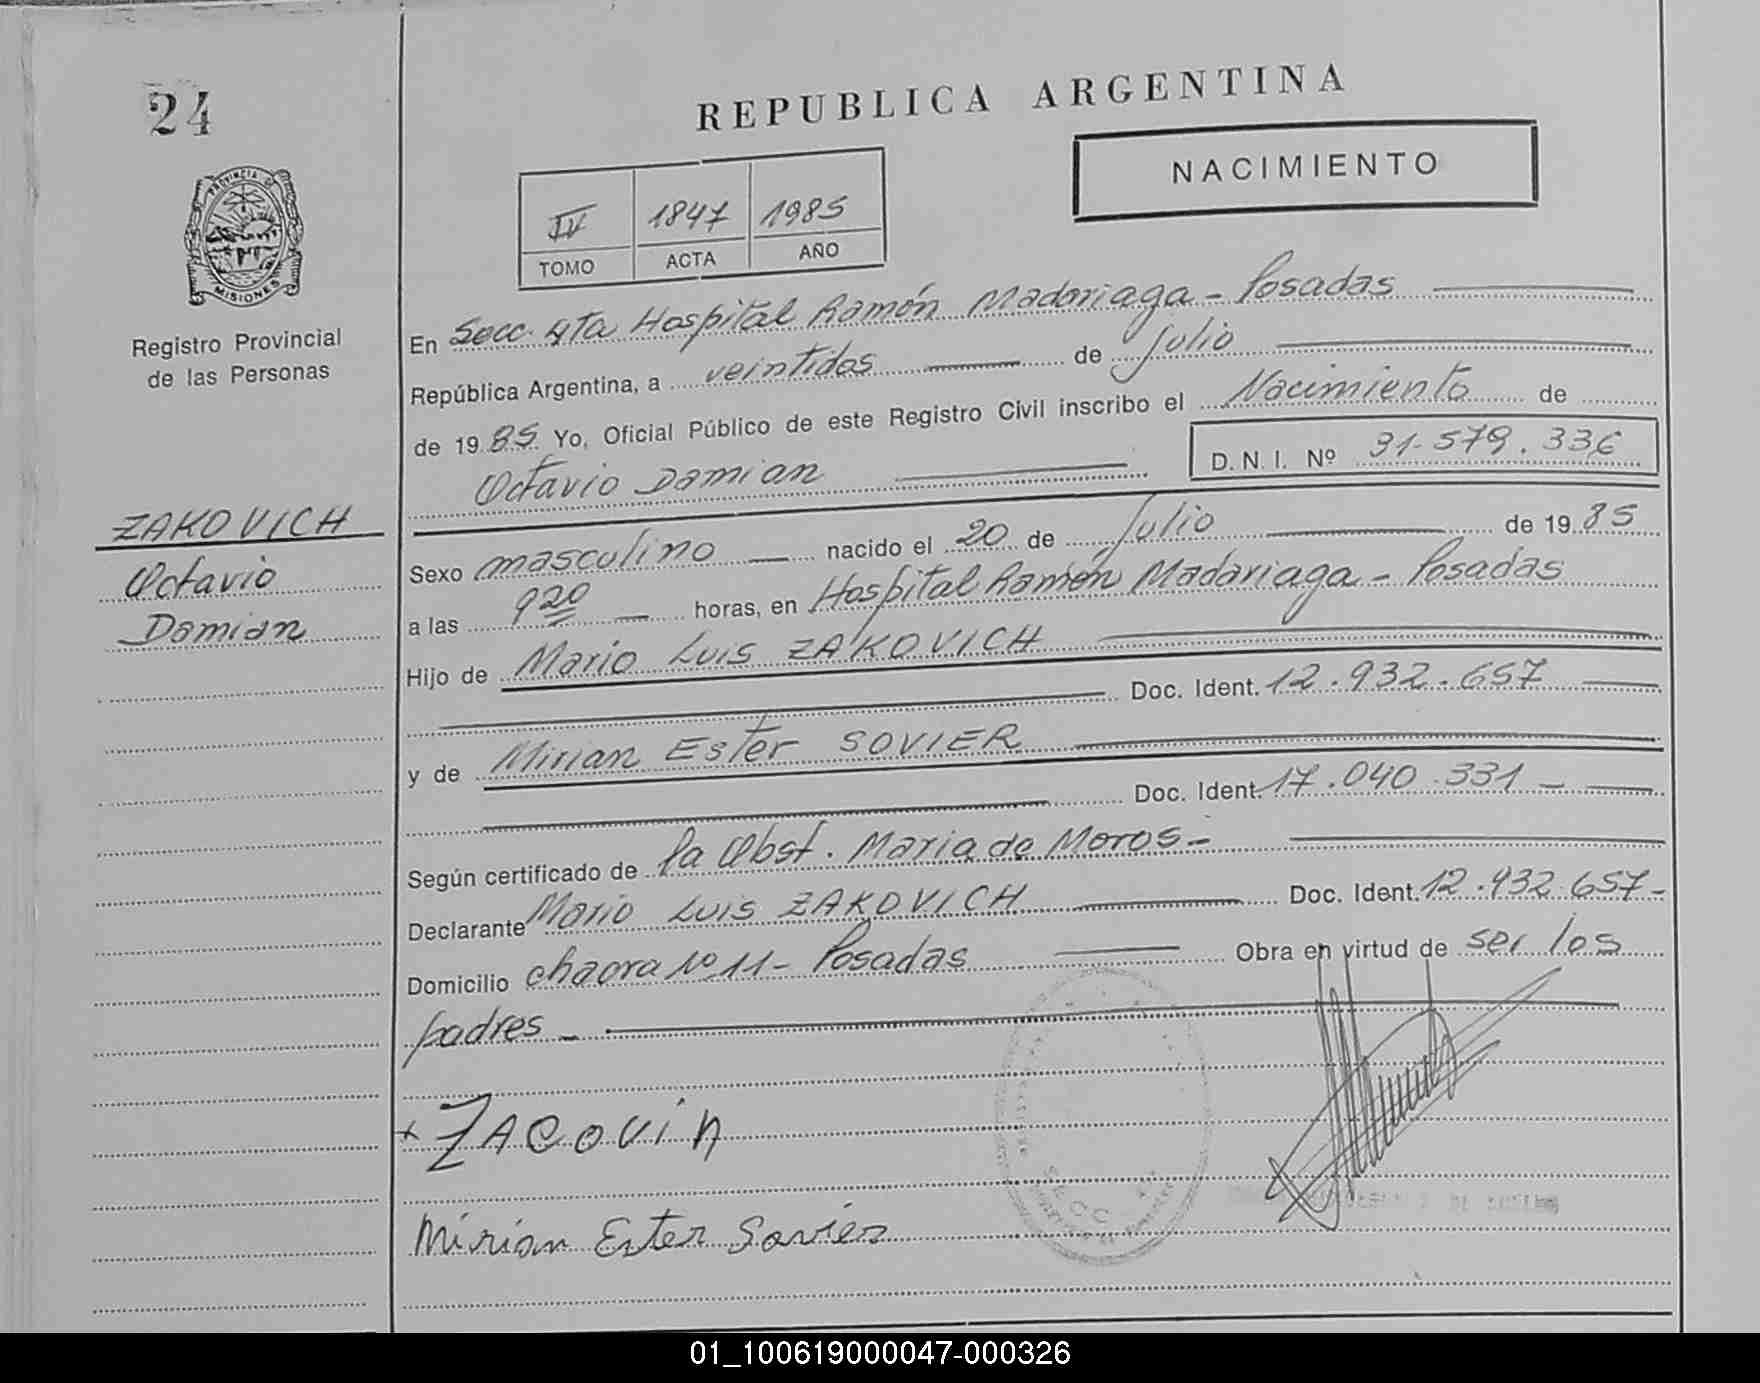 24
REPUBLICA ARGENTINA
NACIMIENTO
IV 1847 1985
TOMO ACTA AÑO
PROVINCIA DE
MISIONES
Registro Provincial
de las Personas
En Secc. 4ta Hospital Ramón Madariaga - Posadas
República Argentina, a veintidos de Julio
de 1985 Yo, Oficial Público de este Registro Civil inscribo el Nacimiento de
Octavio Damian D.N.I. Nº 31.579.336
ZAKOVICH
Octavio
Damian
Sexo masculino nacido el 20 de Julio de 1985
a las 9 20 horas, en Hospital Ramón Madariaga - Posadas
Hijo de Mario Luis ZAKOVICH
Doc. Ident. 12.932.657
y de Mirian Ester SOVIER
Doc. Ident. 17.040.331 -
Según certificado de la Obst. Maria de Moros -
Declarante Mario Luis ZAKOVICH Doc. Ident. 12.932.657 -
Domicilio chacra Nº 11 - Posadas Obra en virtud de ser los
padres -
+ ZACOVIN
Mirian Ester Sovier
SECC
01_100619000047-000326